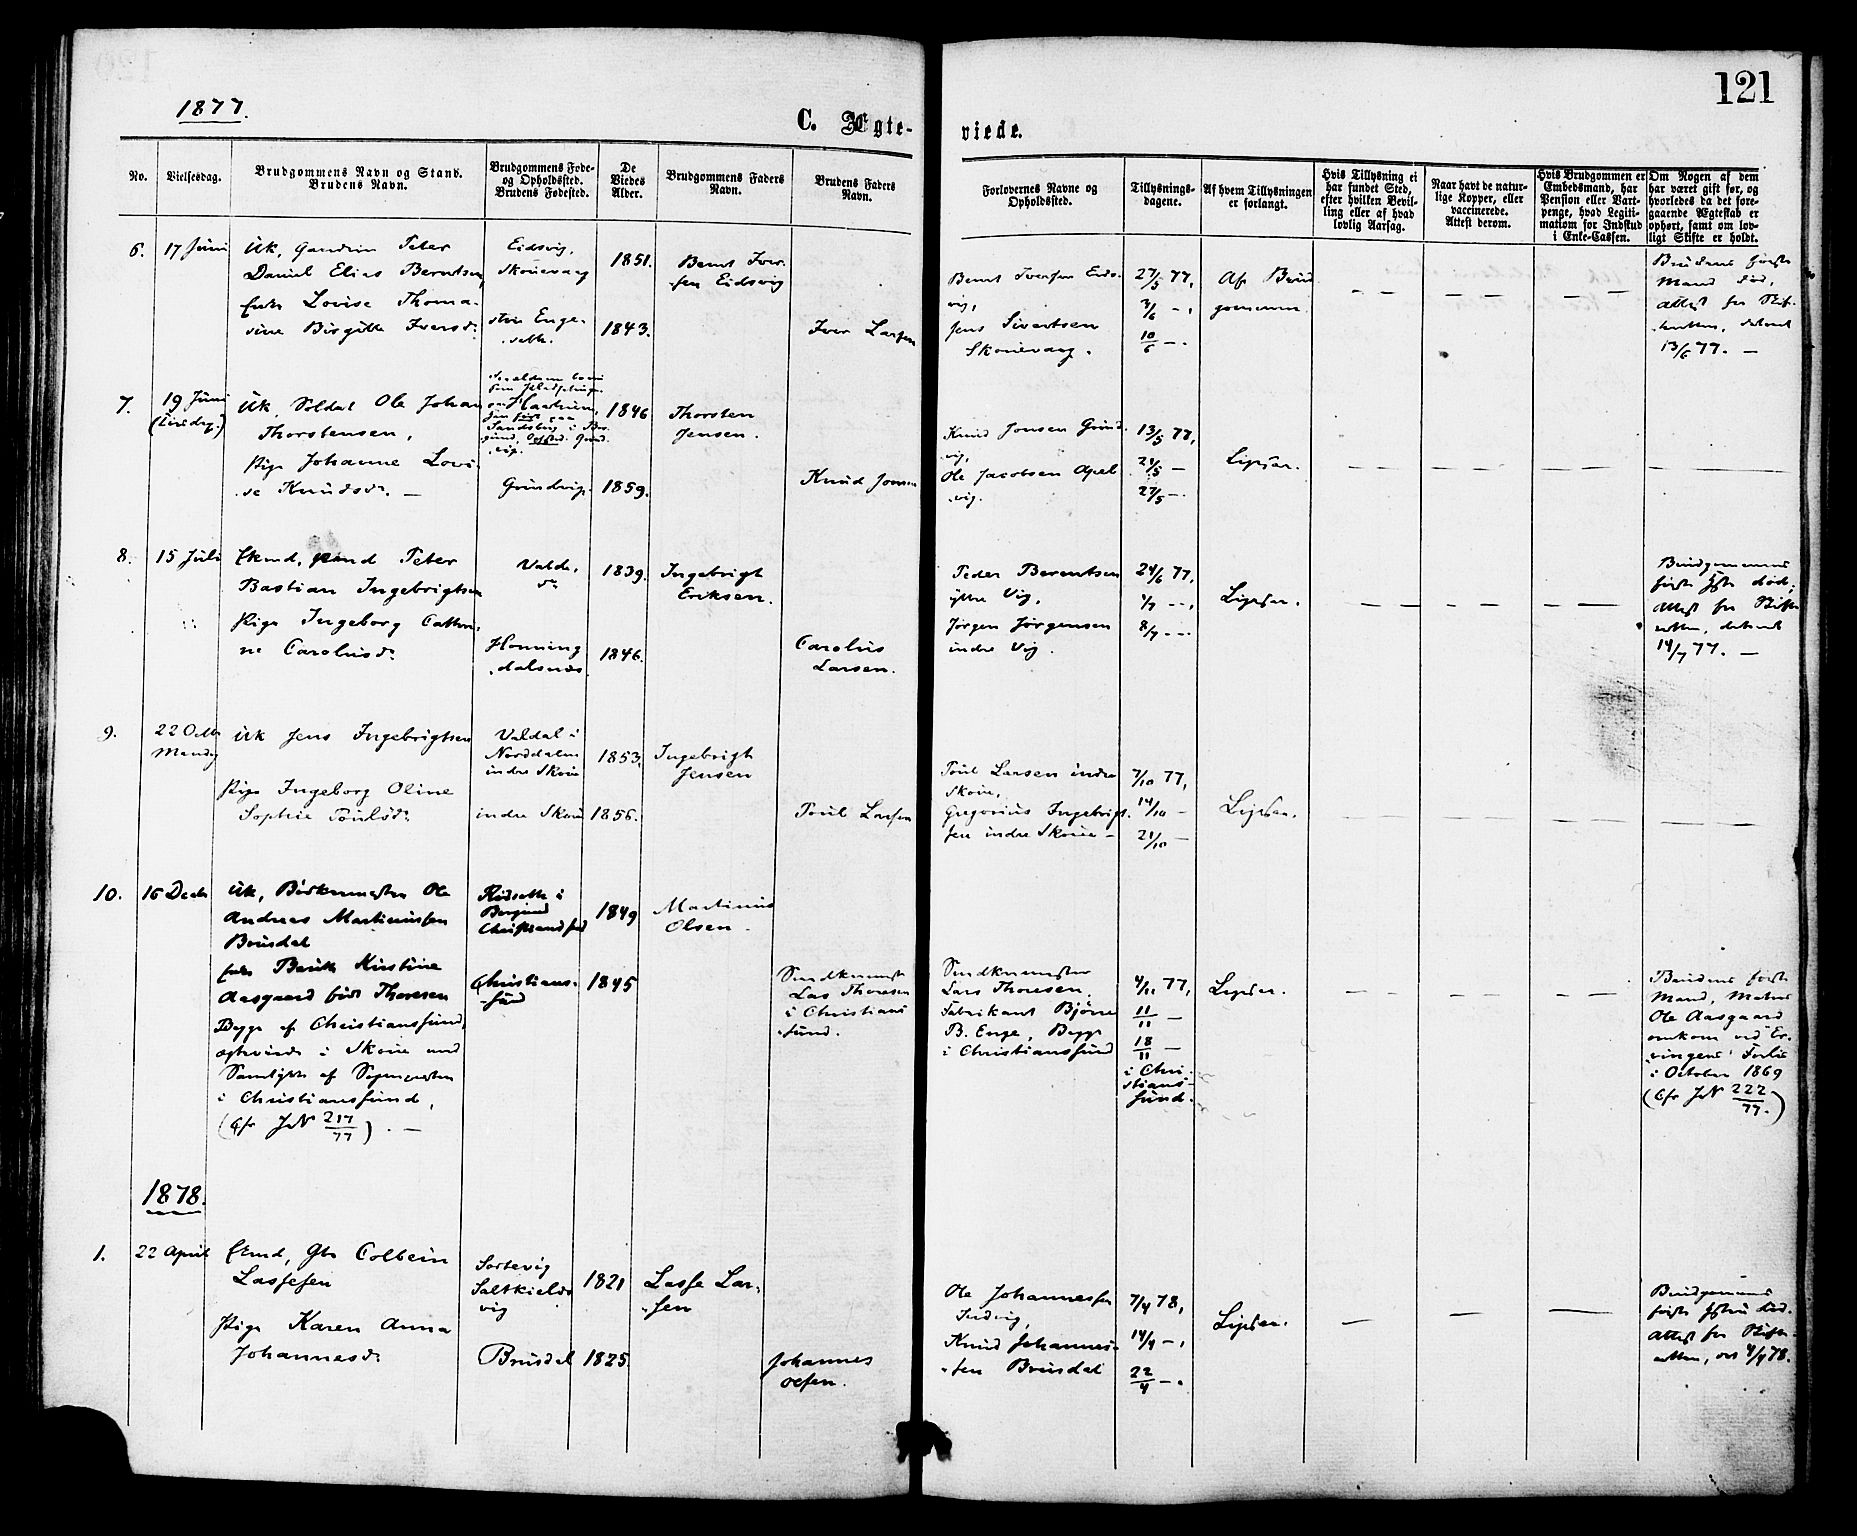 121
1877.
C. Ægte-
viede.
No.
Vielsesdag.
Brudgommens Navn og Stand.
Brudens Navn.
Brudgommens Føde-
og Opholdssted.
Brudens Fødested.
De
Viedes
Alder.
Brudgommens Faders
Navn.
Brudens Faders
Navn.
Forlovernes Navne og
Opholdssted.
Tillysnings-
dagene.
Af hvem Tillysningen
er forlangt.
Hvis Tillysning ei
har fundet Sted,
efter hvilken Bevil-
ling eller af hvad
lovlig Aarsag.
Naar havt de natur-
lige Kopper, eller
vaccinerede.
Attest derom.
Hvis Brudgommen er
Embedsmand, har
Pension eller Vart-
penge, hvad Legiti-
mation for Indskud
i Enke-Cassen.
Om Nogen af dem
har været gift før, og
hvorledes da det fore-
gaaende Ægteskab er
ophørt, samt om lov-
ligt Skifte er holdt.
6.
17 Juni
Uk, Peter
Daniel Elias Berntsen
Enke Lovise Thoma-
sine Birgitte Iversd.
Eidsvig,
Skouevaag
1851.
1843.
Bernt Iver-
sen Eidsvig
Iver Larsen
Bernt Iversen Eids-
vig,
Jens Sivertsen
Skouevaag.
27/5 77,
3/6 -,
10/6 -.
Af Brud
gommen.
Brudens første
Mand død,
Attest fra Skif-
teretten, dateret
13/6 77. -
7.
19 Juni
(Tirsdag.)
Uk, Soldat Ole Johan
Thorstensen,
Pige Johanne Lovi-
se Knudsd. -
Grundvig.
1846
1859.
Thorsten
Jensen.
Knud Jonsen
Knud Jonsen Grund-
vig,
Ole Jacobsen Apel
vig.
13/5 77,
21/5 -
27/5 -.
Ligesaa.
8.
15 Juli
Ekmd, Peter
Bastian Ingebrigtsen
Pige Ingeborg Cathri-
ne Carolusd.
Valde,
do
Honning
dalsnæs.
1839.
1846.
Ingebrigt
Eriksen.
Carolus
Larsen.
Peder Berentsen
ytre Vig,
Jørgen Jørgensen
indre Vig.
24/6 77,
1/7 --,
8/7 --
Ligesaa.
Brudgommens
første Ægte død,
Attest fra Skifte
retten, dateret
14/7 77. -
9.
22 Octb
Mandag
Uk Jens Ingebrigtsen
Pige Ingeborg Oline
Sophie Poulsd.
Valdal i
Norddalen
indre Skoue
indre Skoue
1853.
1856.
Ingebrigt
Jensen
Poul Larsen
Poul Larsen indre
Skoue,
Gregorius Ingebrigt-
sen indre Skoue -
7/10 77,
14/10 -
21/10 -
Ligesaa.
10.
16 Decb
Uk, Bødkermester Ole
Andreas Martinussen
Brusdal
Enke Kirstine
Aasgaard født Thoresen
Begge af Christianssund,
ægteviede i Skoue med
Samtykke af Sognepresten
i Christianssund,
(Cfr JN 217/77). -
Rødsette i
Borgund
Christianssund
Christians-
-sund
1849
1845
Martinus
Olsen.
Lars Thoresen
i Christians
-sund.
Lars Thoresen,
Fabrikant Bjørne
B. Enge, Begge
i Christianssund
4/11 77,
11/11 -
18/11 -
i Chri-
stians-
sund.
Ligesaa.
Brudens første
Mand,
Ole Aasgaard
omkom ved Er-
vingens Forlis
i October 1869
(Cfr JN 222/77.)
1878.
1.
22 April
Ekmd, Gbr Colbein
Lassesen
Pige Karen Anna
Johannesd.
Sortevig
Saltkields
vig
Brusdal
1821
1825.
Lasse Lar-
-sen
Johannes
Olsen.
Ole Johannessen
Indvig,
Knud Johannes-
-sen Brusdal
7/4 78,
14/4 -,
22/4 -.
Ligesaa.
Brudgommens
første Hustru død.
Attest fra Skifte-
retten, 4/4 78.